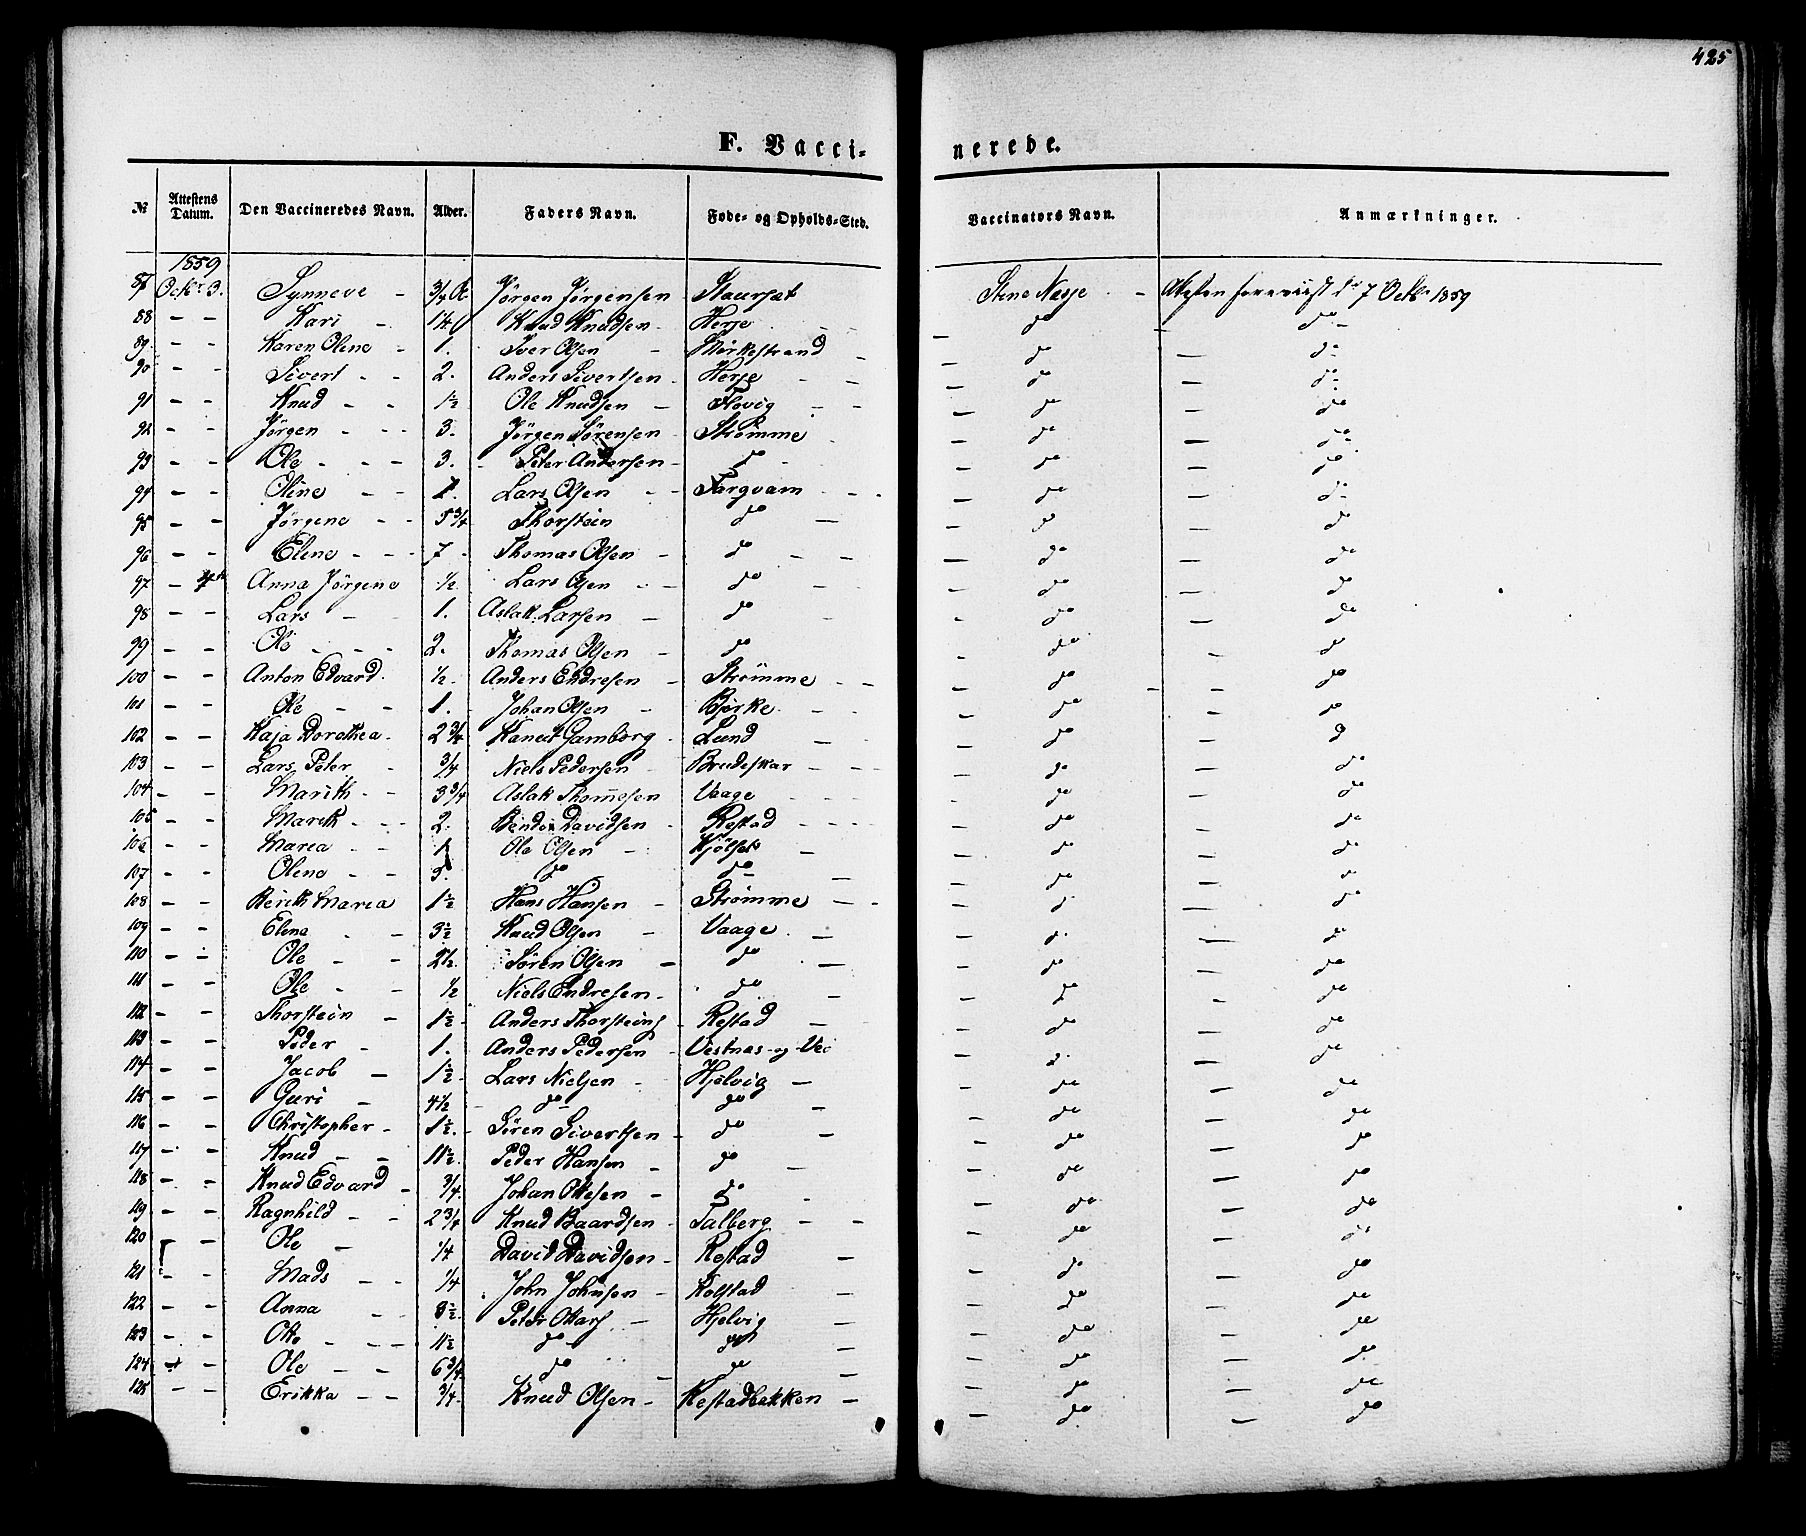 425
F. Vacci-nerede.
№ Attestens Datum. Den Vaccineredes Navn. Alder. Faders Navn. Føde- og Opholds-Sted. Vaccinators Navn. Anmærkninger.
1859
87 Octbr 3. Synneve - 3/4 Jørgen Jørgensen - Stene Nesje - 7 Octbr 1859
88 - - Kari - 1 1/4 Knud Knudsen - Herje - - do - do -
89. - - Karen Olene - 1. Iver Olsen - Mørkestrand - do - do
90 - - Sivert - - 2. Anders Sivertsen - Herje - - do - do
91 - - Knud - - 1½ Ole Knudsen - Flovig - - do - do
92 - - Jørgen - - - 3. Jörgen Sörensen - Strømme - do - do
93 - - Ole - - - 3. - Peter Andersen - do - - do - do
94 - - Oline - - 1. Lars Olsen - - Fargvam - - - do - do
95 - - Jörgene - - 5 3/4 Thorstein do - - do - do
96 - - Elene - - - 7 - Thomas Olsen - do - - - do - do
97 - 4de Anna Jörgene ½ Lars Olsen - - do - - do - do
98 - - Lars - 1. Aslak Larsen - do - - do - do
99 - - Ole - - - 2. Thomas Olsen - do - do - do
100 - - Anton Edvard. ½. Anders Endresen - Strömme - - - do - - do
101 - - Ole - - 1. - Johan Olsen - Bjørke - - - do - do
102 - - Kaja Dorothea. 2 3/4 Kanut Gamborg - Lund - - do - d
103 - - Lars Peter - 3/4 Niels Pedersen - Brudeskar - - - - do - do
104 - - Marith - - 3 3/4 Aslak Thomesen Vaage - - - - do - do
105 - - Marith - - - 2. Bendix Davidsen - Restad - - - - do - do
106 - - Maria - - 1 Ole Olsen - Kjölset - - do - do
107 - - Olene - - 3. do do - - do - do
108 - - Berith Maria 1½ Hans Hansen - Strømme - - - do - do
109 - - Elena - - 3½ Knud Olsen - Vaage. - - do - do
110 - - Ole - - 2½. Sören Olsen - do - - do - do
111 - - Ole - - ½ Niels Endresen - do - - do - do
112 - - Thorstein - 1½ - Anders Thorsteins - Restad - - do - do
113 - - Peder - 1. Anders Pedersen - Vestnas - do - do
114 - - Jacob - 1½ - Lars Nielsen - Hjelvig - do - do
115 - - Guri - 4½ - do - do - - do - do
116 - - Christopher - 1½. - Sören Sivertsen - do - - do - do
117 - - Knud - - 11½. Peder Hansen - do - - do - do
118 - - Knud Edvard - 3/4. Johan Ottesen - do - - do - do
119 - - Ragnhild - - 2 3/4 Knud Baardsen - Talberg - - - do - do
120 - Ole - 1/4 David Davidsen - Restad - - do - do
121 - - Mads - - 1/4 John Johnsen - Kolstad - - do - do
122 - - Anna - 3½. Peter Ottars - Hjelvig - - do - do
123 - - Otto - - - 11½ do do - - do - do
124 - - Ole - - 6 3/4 do - do - - do - do
125 - - Erikka - - 3/4. Knud Olsen - Restadbakken - - do - do